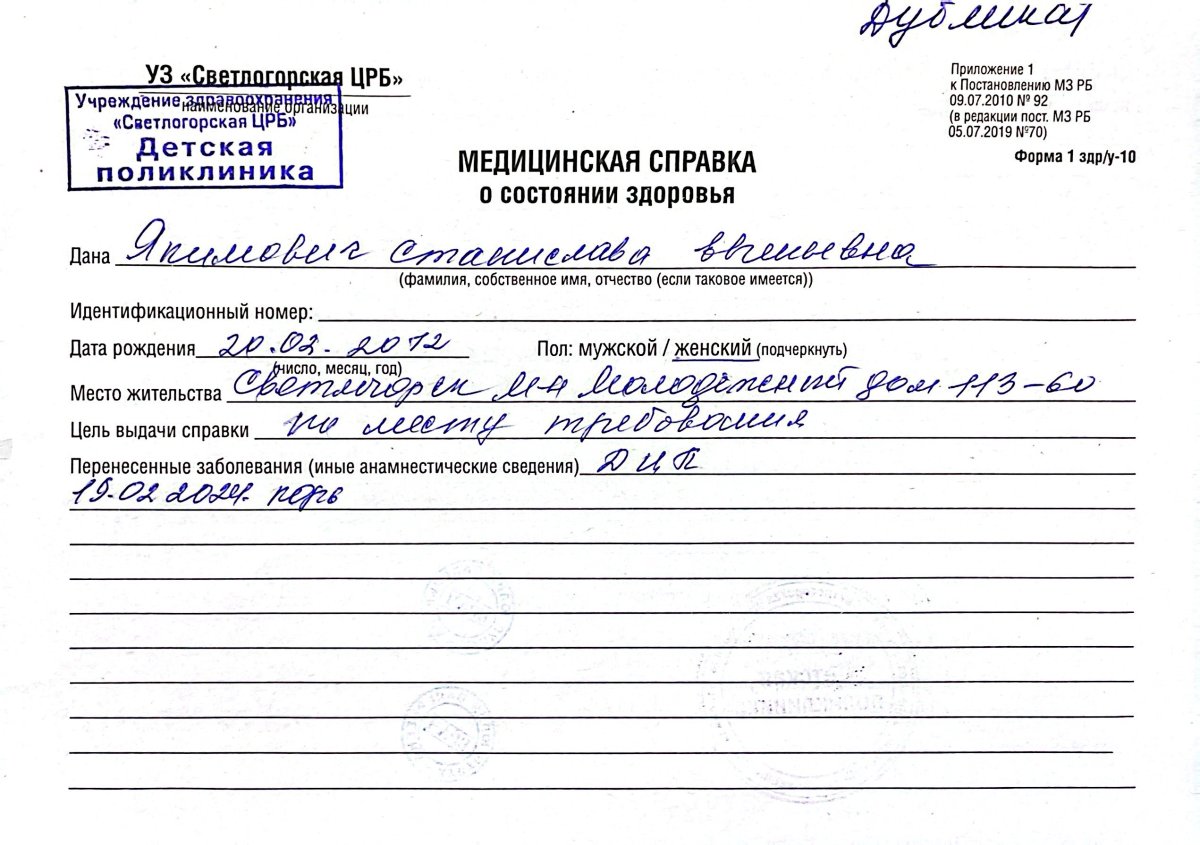 Дубликат
УЗ «Светлогорская ЦРБ»
наименование организации
Учреждение здравоохранения
«Светлогорская ЦРБ»
Детская
поликлиника
Приложение 1
к Постановлению МЗ РБ
09.07.2010 № 92
(в редакции пост. МЗ РБ
05.07.2019 №70)
Форма 1 здр/у-10
МЕДИЦИНСКАЯ СПРАВКА
о состоянии здоровья
Дана Якимович Станислава Евгеньевна
(фамилия, собственное имя, отчество (если таковое имеется))
Идентификационный номер:
Дата рождения 20.02.2012 Пол: мужской / женский (подчеркнуть)
(число, месяц, год)
Место жительства Светлогорск м-н Молодёжный дом 113-60
Цель выдачи справки по месту требования
Перенесенные заболевания (иные анамнестические сведения) ДЦП
19.02.2024. корь